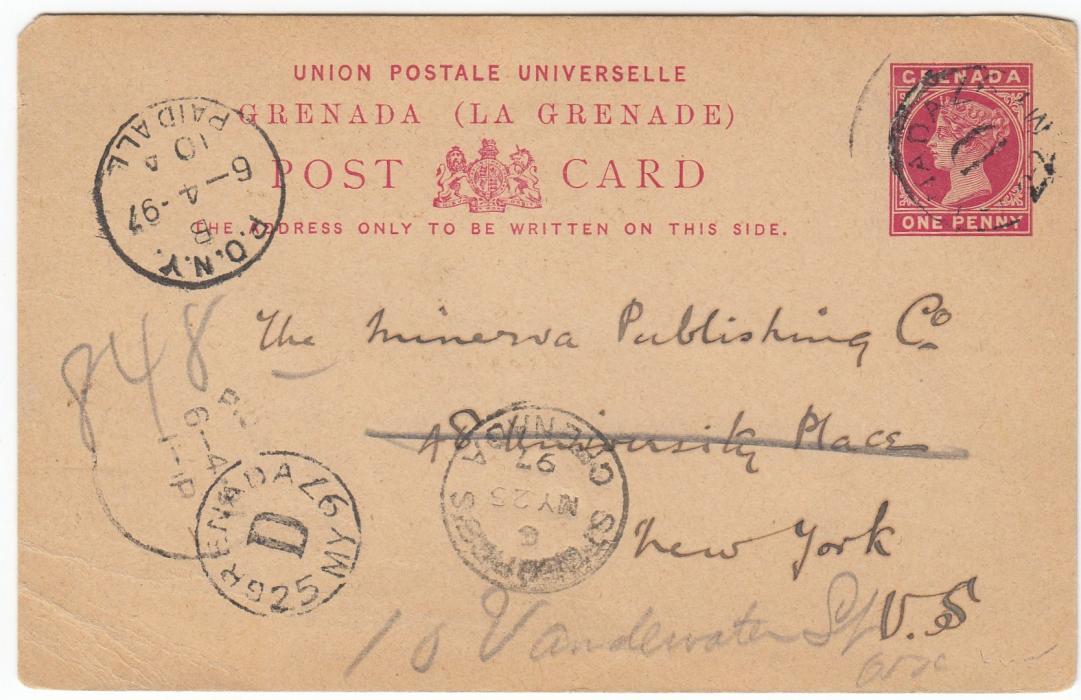 UNION POSTALE UNIVERSELLE
GRENADA (LA GRENADE)
POST CARD
THE ADDRESS ONLY TO BE WRITTEN ON THIS SIDE.
GRENADA
ONE PENNY
P.O.N.Y.
B
6-4-97
10 A
PAID ALL
848
The Minerva Publishing Co
48 University Place
New York
U.S
10 Vandewater St
GRENADA
D
25 MY 97
6-4
MY 25
97